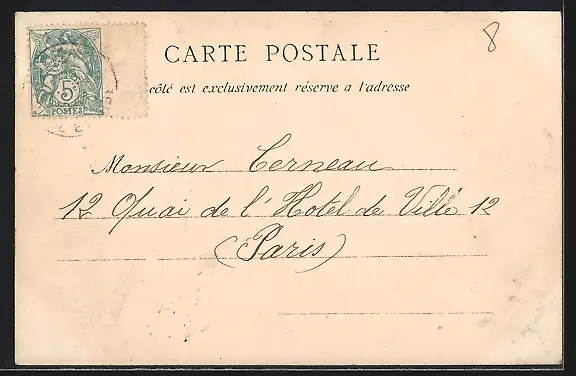 8
CARTE POSTALE
côté est exclusivement réservé a l'adresse
5c
POSTES
Monsieur Cerneau
12 Quai de l'Hotel de Ville 12
(Paris)